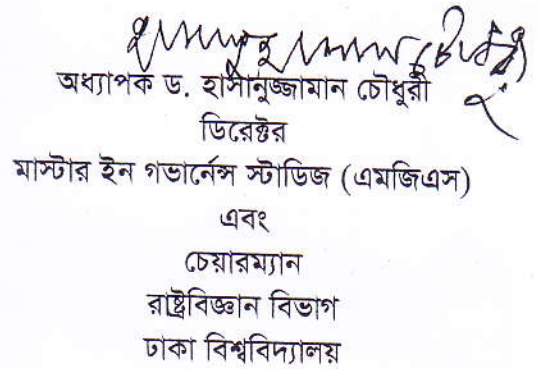 অধ্যাপক ড. হাসানুজ্জামান চৌধুরী
ডিরেক্টর
মাস্টার ইন গভার্নেন্স স্টাডিজ (এমজিএস)
এবং
চেয়ারম্যান
রাষ্ট্রবিজ্ঞান বিভাগ
ঢাকা বিশ্ববিদ্যালয়